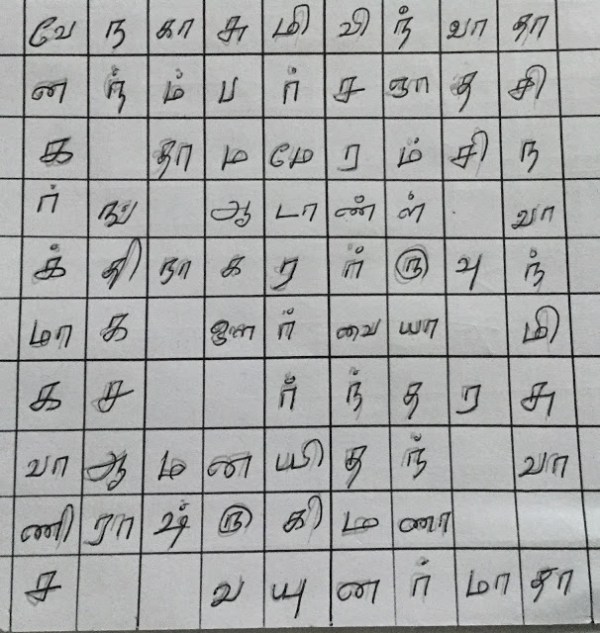 வே ந கா சு மி வி ந் வா தா
ன ந் ம் ப ர் ச நா த சி
க தா ம மே ர ம் சி ந
ர் ங் ஆ டா ண் ள் வா
க் தி நா க ர ர் ரு வு ந்
மா க ளை ர் வை யா மி
க ச ர் ந் த ர சு
வா ஆ ம ன யி த ந் வா
ணி ரா ஷ் ரு கி ம ணா
ச வ யு ன ர் மா தா